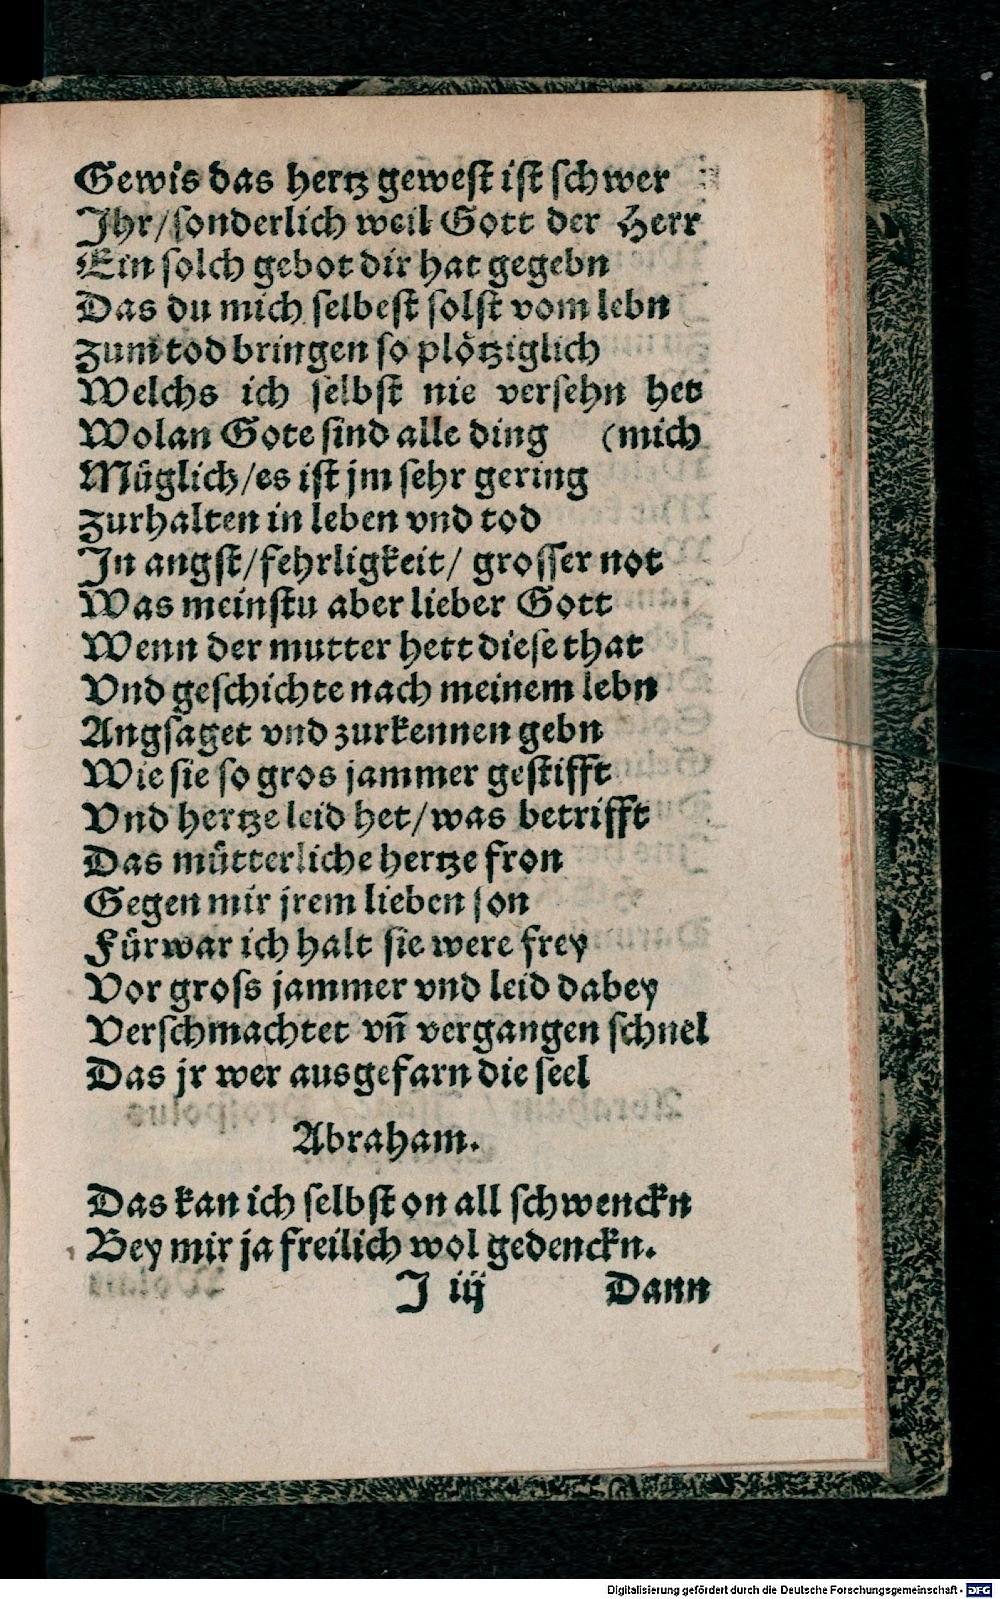 Gewis das hertz gewest ist schwer
Ihr/sonderlich weil Gott der Herr
Ein solch gebot dir hat gegebn
Das du mich selbest solst vom lebn
Zum tod bringen so plötziglich
Welchs ich selbst nie versehn het
Wolan Gote sind alle ding (mich
Müglich/es ist jm sehr gering
Zurhalten in leben vnd tod
In angst/fehrligkeit/ grosser not
Was meinstu aber lieber Gott
Wenn der mutter hett diese that
Vnd geschichte nach meinem lebn
Angsaget vnd zurkennen gebn
Wie sie so gros jammer gestifft
Vnd hertze leid het/was betrifft
Das mütterliche hertze fron
Gegen mir jrem lieben son
Fürwar ich halt sie were frey
Vor gross jammer vnd leid dabey
Verschmachtet vñ vergangen schnel
Das jr wer ausgefarn die seel
Abraham.
Das kan ich selbst on all schwenckn
Bey mir ja freilich wol gedenckn.
I iij Dann
Digitalisierung gefördert durch die Deutsche Forschungsgemeinschaft - DFG